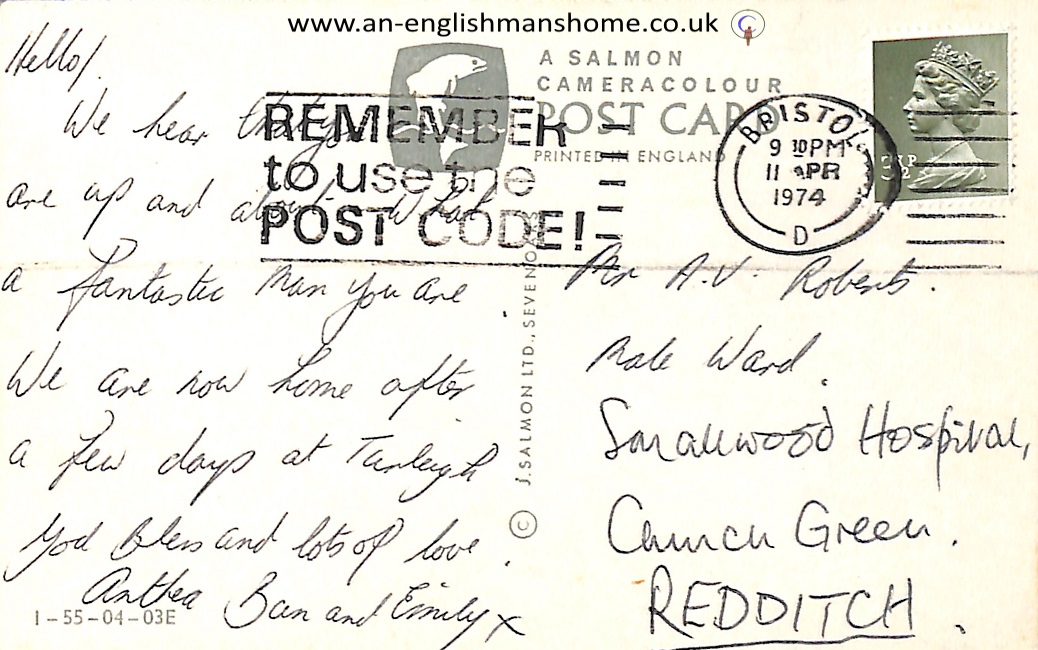 www.an-englishmanshome.co.uk
Hello!
We hear that you
are up and about. What
a fantastic man you are
We are now home after
a few days at
God Bless and lots of love.
Anthea Ban and Emily x
1-55-04-03E
A SALMON
CAMERACOLOUR
POST CARD
PRINTED IN ENGLAND
REMEMBER
to use the
POST CODE!
BRISTOL
9 30PM
11 APR
1974
D
© J. SALMON LTD., SEVENO
Mr A.V. Roberts.
Male Ward.
Smallwood Hospital,
Church Green.
REDDITCH.